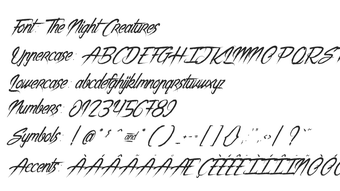 Font: The Night Creatures
Uppercase: ABCDEFGHIJKLMNOPQRST
Lowercase: abcdefghijklmnopqrstuvwxyz
Numbers: 0123456789
Symbols: | @ * $ ^ and ( ) _ + - = [ ] { } ; : " , < > / ?
Accents: ÀÁÂÃÄÅÆÇÈÉÊËÌÍÎÏÑÒÓ